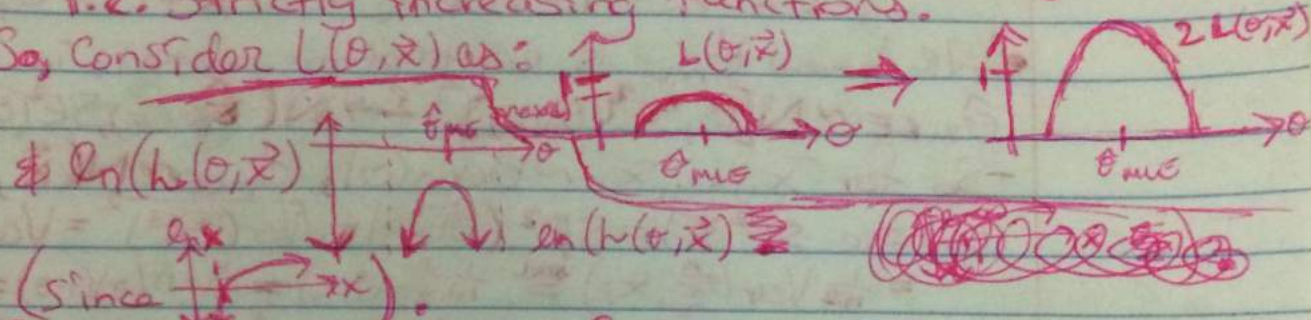 i.e. Strictly increasing functions.
So, Consider L(θ,x⃗) as: L(θ,x⃗) → 2L(θ,x⃗)
1 θ θ̂MLE 1 θ
θ̂MLE θ θ̂MLE
& ln(L(θ,x⃗) ln(L(θ,x⃗)
ln x
(Since x).